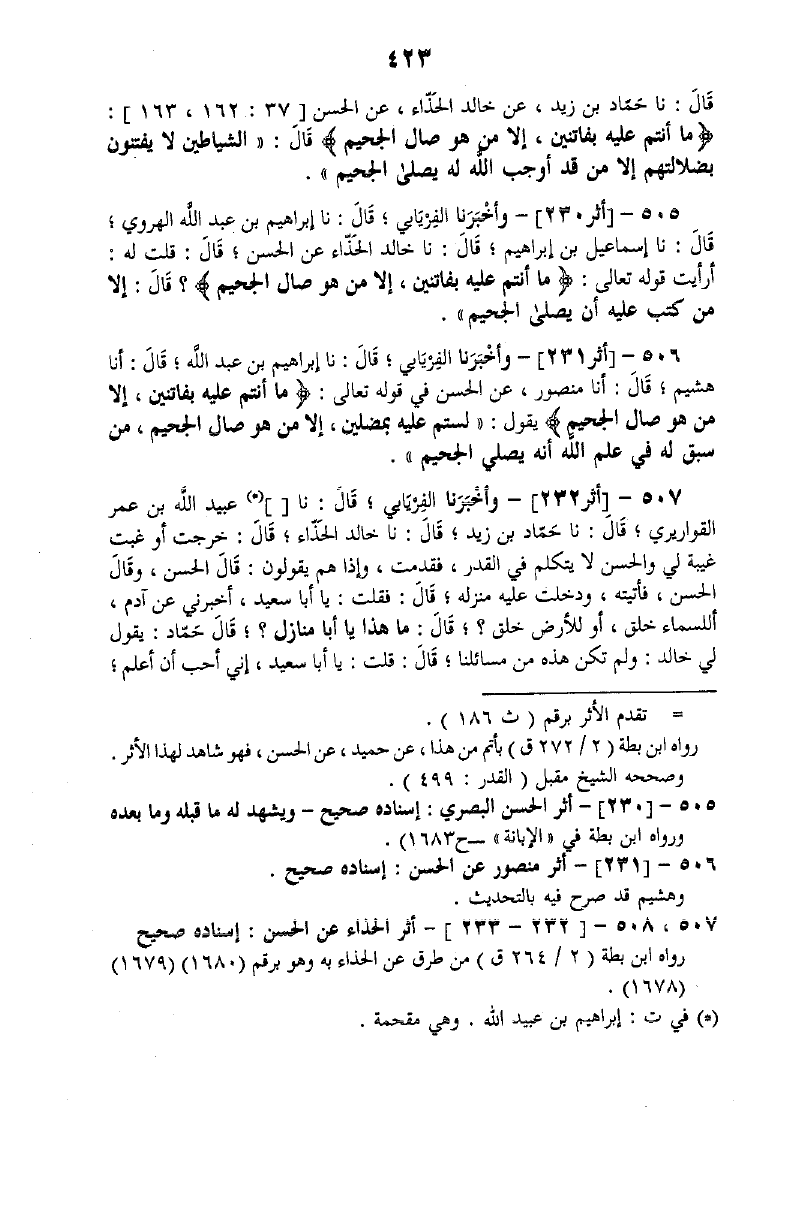 ٤٢٣
قَالَ : نا حَمّاد بن زيد ، عن خالد الحَذّاء ، عن الحسن [ ٣٧ : ١٦٢ ، ١٦٣ ] :
﴿ ما أنتم عليه بفاتنين ، إلا من هو صال الجحيم ﴾ قَالَ : « الشياطين لا يفتنون
بضلالتهم إلا من قد أوجب اللَّه له يصلىٰ الجحيم » .
٥٠٥ – [أثر ٢٣٠] – وأخْبَرَنا الفِرْيَابي ؛ قَالَ : نا إبراهيم بن عبد اللَّه الهروي ؛
قَالَ : نا إسماعيل بن إبراهيم ؛ قَالَ : نا خالد الحَذّاء عن الحسن ؛ قَالَ : قلت له :
أرأيت قوله تعالى : ﴿ ما أنتم عليه بفاتنين ، إلا من هو صال الجحيم ﴾ ؟ قَالَ : إلا
من كتب عليه أن يصلىٰ الجحيم» .
٥٠٦ – [أثر ٢٣١] – وأخْبَرَنا الفِرْيَابي ؛ قَالَ : نا إبراهيم بن عبد اللَّه ؛ قَالَ : أنا
هشيم ؛ قَالَ : أنا منصور ، عن الحسن في قوله تعالى : ﴿ ما أنتم عليه بفاتنين ، إلا
من هو صال الجحيم ﴾ يقول : « لستم عليه بمضلين ، إلا من هو صال الجحيم ، من
سبق له في علم اللَّه أنه يصلي الجحيم » .
٥٠٧ – [أثر ٢٣٢] – وأخْبَرَنا الفِرْيَابي ؛ قَالَ : نا [ ](*) عبيد اللَّه بن عمر
القواريري ؛ قَالَ : نا حَمّاد بن زيد ؛ قَالَ : نا خالد الحَذّاء ؛ قَالَ : خرجت أو غبت
غيبة لي والحسن لا يتكلم في القدر ، فقدمت ، وإذا هم يقولون : قَالَ الحسن ، وقَالَ
الحسن ، فأتيته ، ودخلت عليه منزله ؛ قَالَ : فقلت : يا أبا سعيد ، أخبرني عن آدم ،
أللسماء خلق ، أو للأرض خلق ؟ ؛ قَالَ : ما هذا يا أبا منازل ؟ ؛ قَالَ حَمّاد : يقول
لي خالد : ولم تكن هذه من مسائلنا ؛ قَالَ : قلت : يا أبا سعيد ، إني أحب أن أعلم ؛
= تقدم الأثر برقم ( ث ١٨٦ ) .
رواه ابن بطة ( ٢ / ٢٧٢ ق ) بأتم من هذا ، عن حميد ، عن الحسن ، فهو شاهد لهذا الأثر .
وصححه الشيخ مقبل ( القدر : ٤٩٩ ) .
٥٠٥ – [٢٣٠] – أثر الحسن البصري : إسناده صحيح – ويشهد له ما قبله وما بعده
ورواه ابن بطة في « الإبانة » –ح١٦٨٣) .
٥٠٦ – [٢٣١] – أثر منصور عن الحسن : إسناده صحيح .
وهشيم قد صرح فيه بالتحديث .
٥٠٧ ، ٥٠٨ – [ ٢٣٢ – ٢٣٣ ] – أثر الحذاء عن الحسن : إسناده صحيح
رواه ابن بطة ( ٢ / ٢٦٤ ق ) من طرق عن الحذاء به وهو برقم (١٦٨٠) (١٦٧٩)
(١٦٧٨) .
(*) في ت : إبراهيم بن عبيد الله . وهي مقحمة .